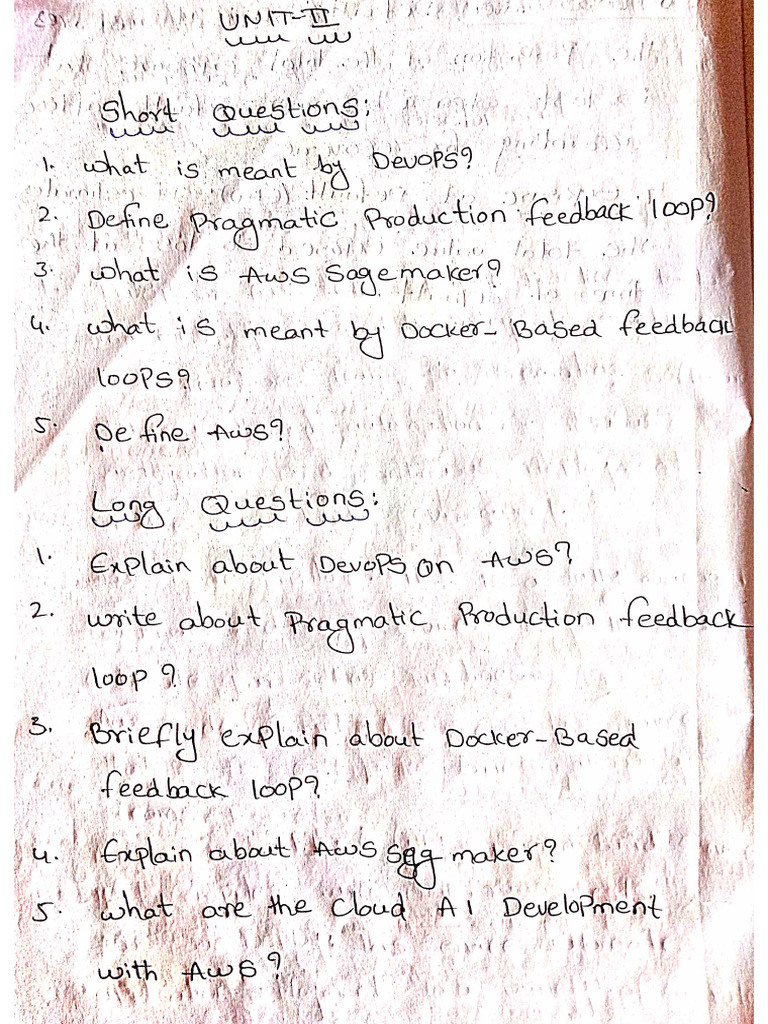 UNIT-II
Short Questions:
1. What is meant by DevOPS?
2. Define Pragmatic Production feedback loop?
3. What is AWS Sagemaker?
4. What is meant by Docker-Based feedback
loops?
5. Define AWS?
Long Questions:
1. Explain about DevOPS on AWS?
2. Write about Pragmatic Production feedback
loop?
3. Briefly explain about Docker-Based
feedback loop?
4. Explain about AWS sagmaker?
5. What are the Cloud AI Development
with AWS?